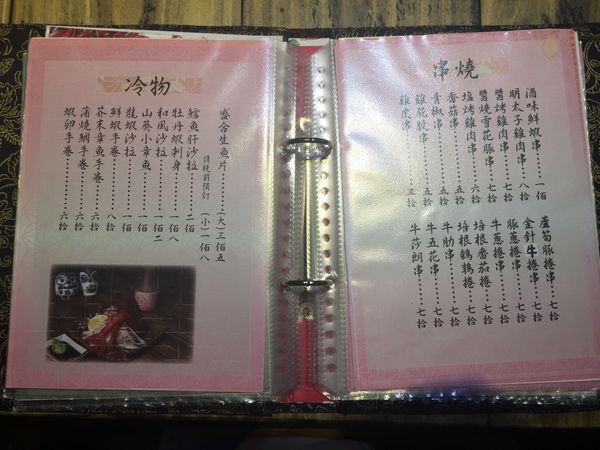 冷物
盛合生魚片……(大)三佰五
請提前預訂 (小)一佰八
鱈魚肝沙拉……二佰
牡丹蝦刺身……一佰八
和風沙拉……一佰二
山葵小章魚……一佰
龍蝦沙拉……一佰
鮮蝦手卷……八拾
芥末章魚手卷……六拾
蒲燒鯛手卷……六拾
蝦卵手卷……六拾
串燒
酒味鮮蝦串……一佰
明太子雞肉串……八拾
醬烤雞肉串……七拾
醬燒雪花豚串……七拾
塩烤雞肉串……六拾
香菇串……五拾
青椒串……五拾
雞屁股串……五拾
雞皮串……三拾
蘆筍豚捲串……七拾
金針牛捲串……七拾
豚蔥捲串……七拾
牛蔥捲串……七拾
培根番茄捲……七拾
培根鵪鶉捲……七拾
牛肋串……七拾
牛五花串……七拾
牛莎朗串……七拾